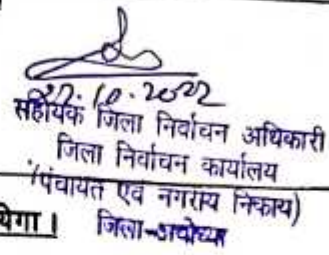 27.10.2022
सहायक जिला निर्वाचन अधिकारी
जिला निर्वाचन कार्यालय
(पंचायत एवं नगरीय निकाय)
येगा। जिला-अयोध्या